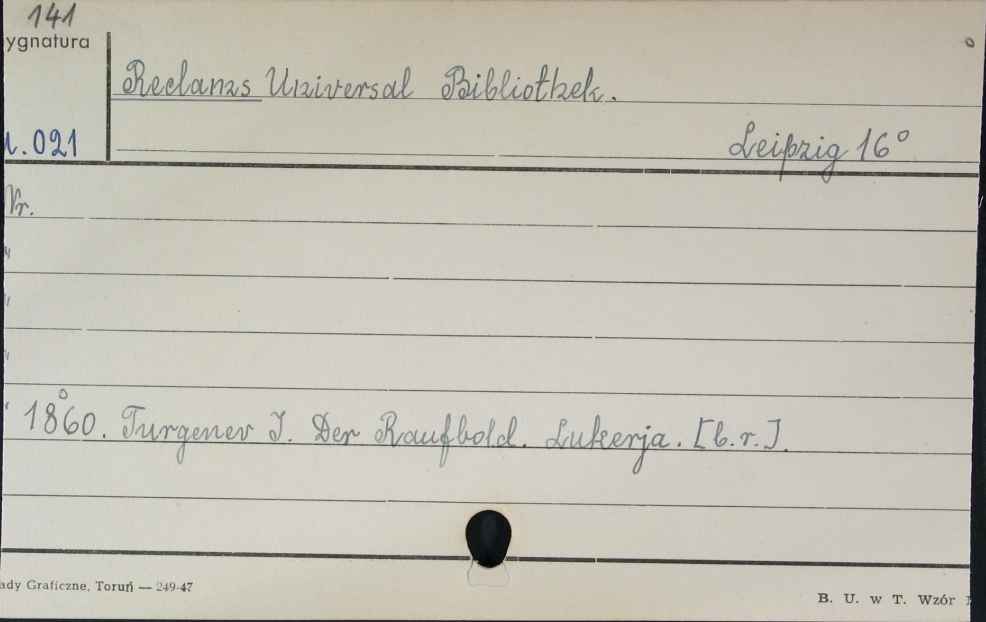 141
ygnatura
Reclams Universal Bibliothek.
Leipzig 16°
1.021
Nr.
"
"
"
" 1860. Turgenev I. Der Raufbold. Lukerja. [b.r.].
ady Graficzne, Toruń — 249-47
B. U. w T. Wzór